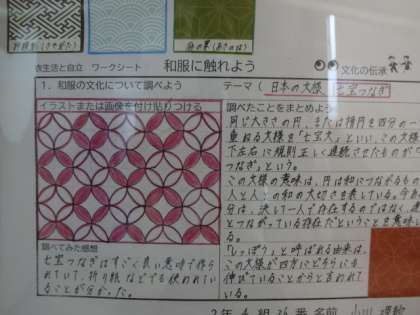 紗綾形(さやがた)
麻の葉(あさのは)
衣生活と自立 ワークシート
和服に触れよう
文化の伝承
1. 和服の文化について調べよう
テーマ(日本の文様 七宝つなぎ
イラストまたは画像を付け貼りつける
調べたことをまとめよう
同じ大きさの円、または楕円を四分の一
重ねる文様を「七宝文」といい、この文様
下左右に規則正しく連続させたものが
つなぎ」という。
この文様の意味は、円は和につながるもの
人と人との和の大切さを表している。
分は、決して一人で存在するのではなく
とつながっている存在だということを意味
いる。
「しっぽう」と呼ばれる由来は、
この文様が四方にどちらにも
伸びていることからと言われて
いる。
調べてみた感想
七宝つなぎはすごく良い意味で作ら
れていて、折り紙などでも使われてい
ることが分かった。
2年 4 組 36 番 名前 小川